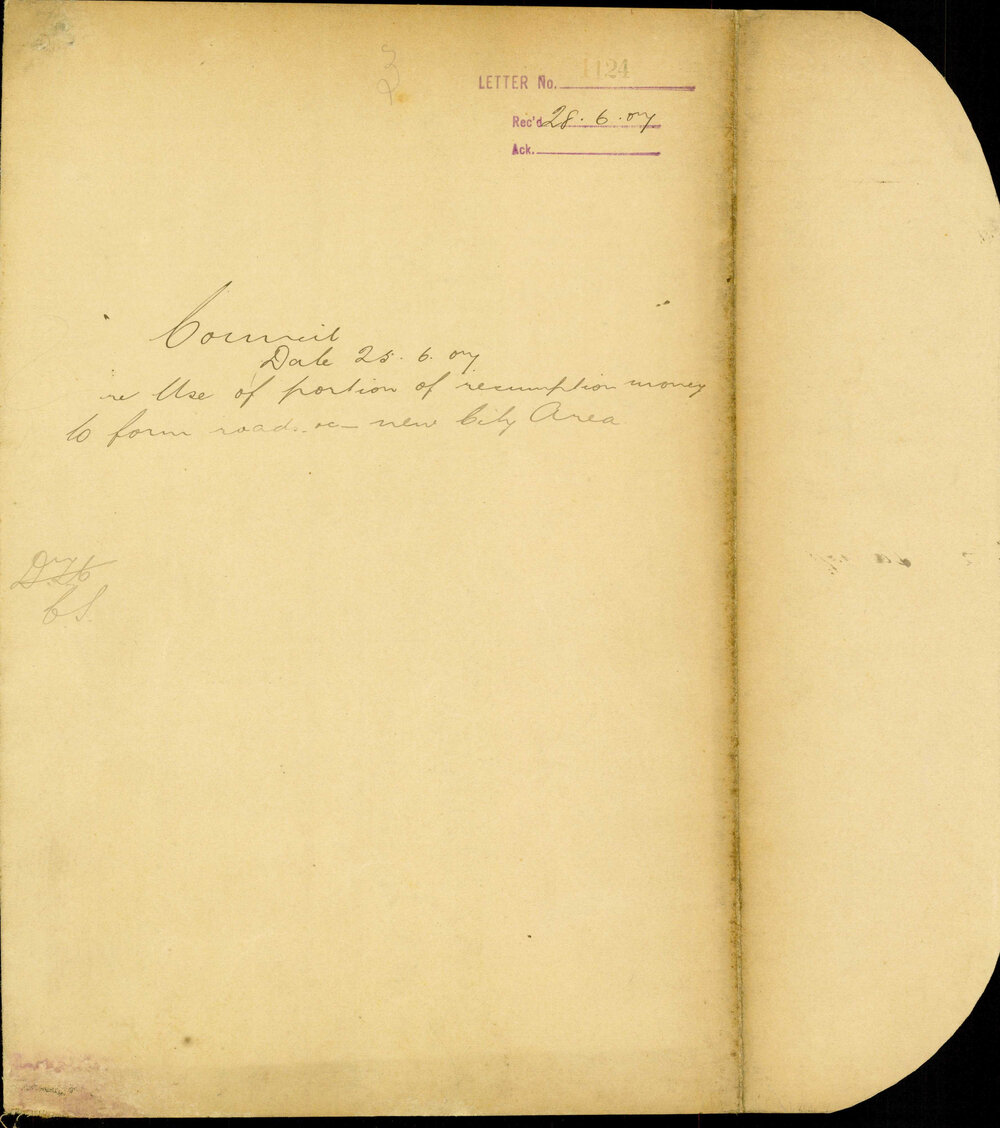 LETTER No. 1124
Rec'd 28. 6. 07
Ack.
" Council "
Date 25. 6. 07
re Use of portion of resumption money
to form roads &c – new City Area
C.S.